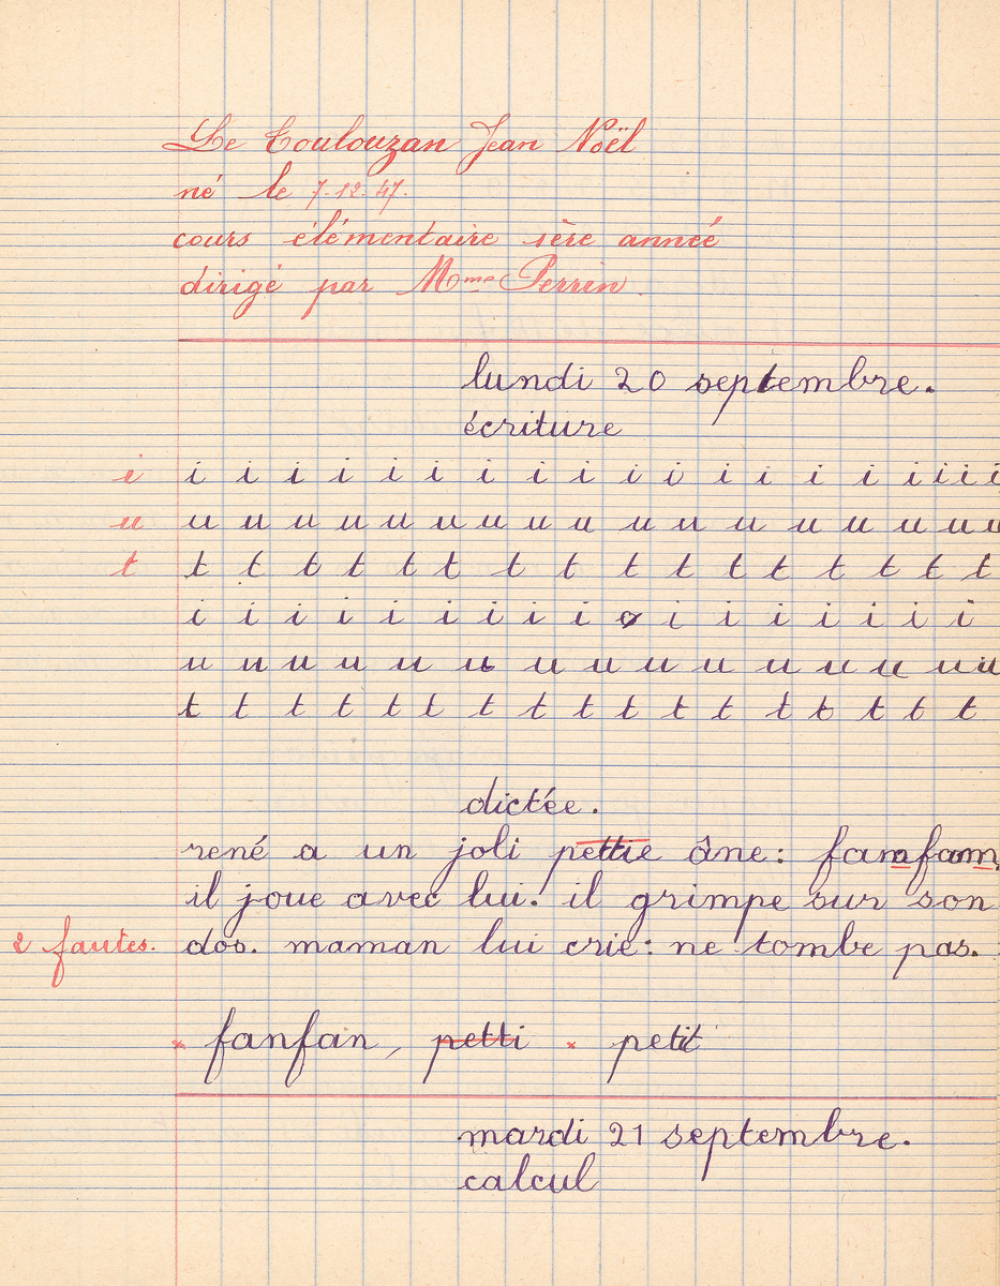 Le Toulouzan Jean Noël
né le 7-12-47.
cours élémentaire 1ère année
dirigé par Mme Perrin.
lundi 20 septembre.
écriture
i i i i i i i i i i i i i i i i i i i
u u u u u u u u u u u u u u u u u u
t t t t t t t t t t t t t t t t t
i i i i i i i i i i o i i i i i i i
u u u u u u u u u u u u u u u u u
t t t t t t t t t t t t t t t t t
dictée.
rené a un joli pettie âne: famfam.
il joue avec lui. il grimpe sur son
2 fautes. dos. maman lui crie: ne tombe pas.
x fanfan, petti x petit
mardi 21 septembre.
calcul